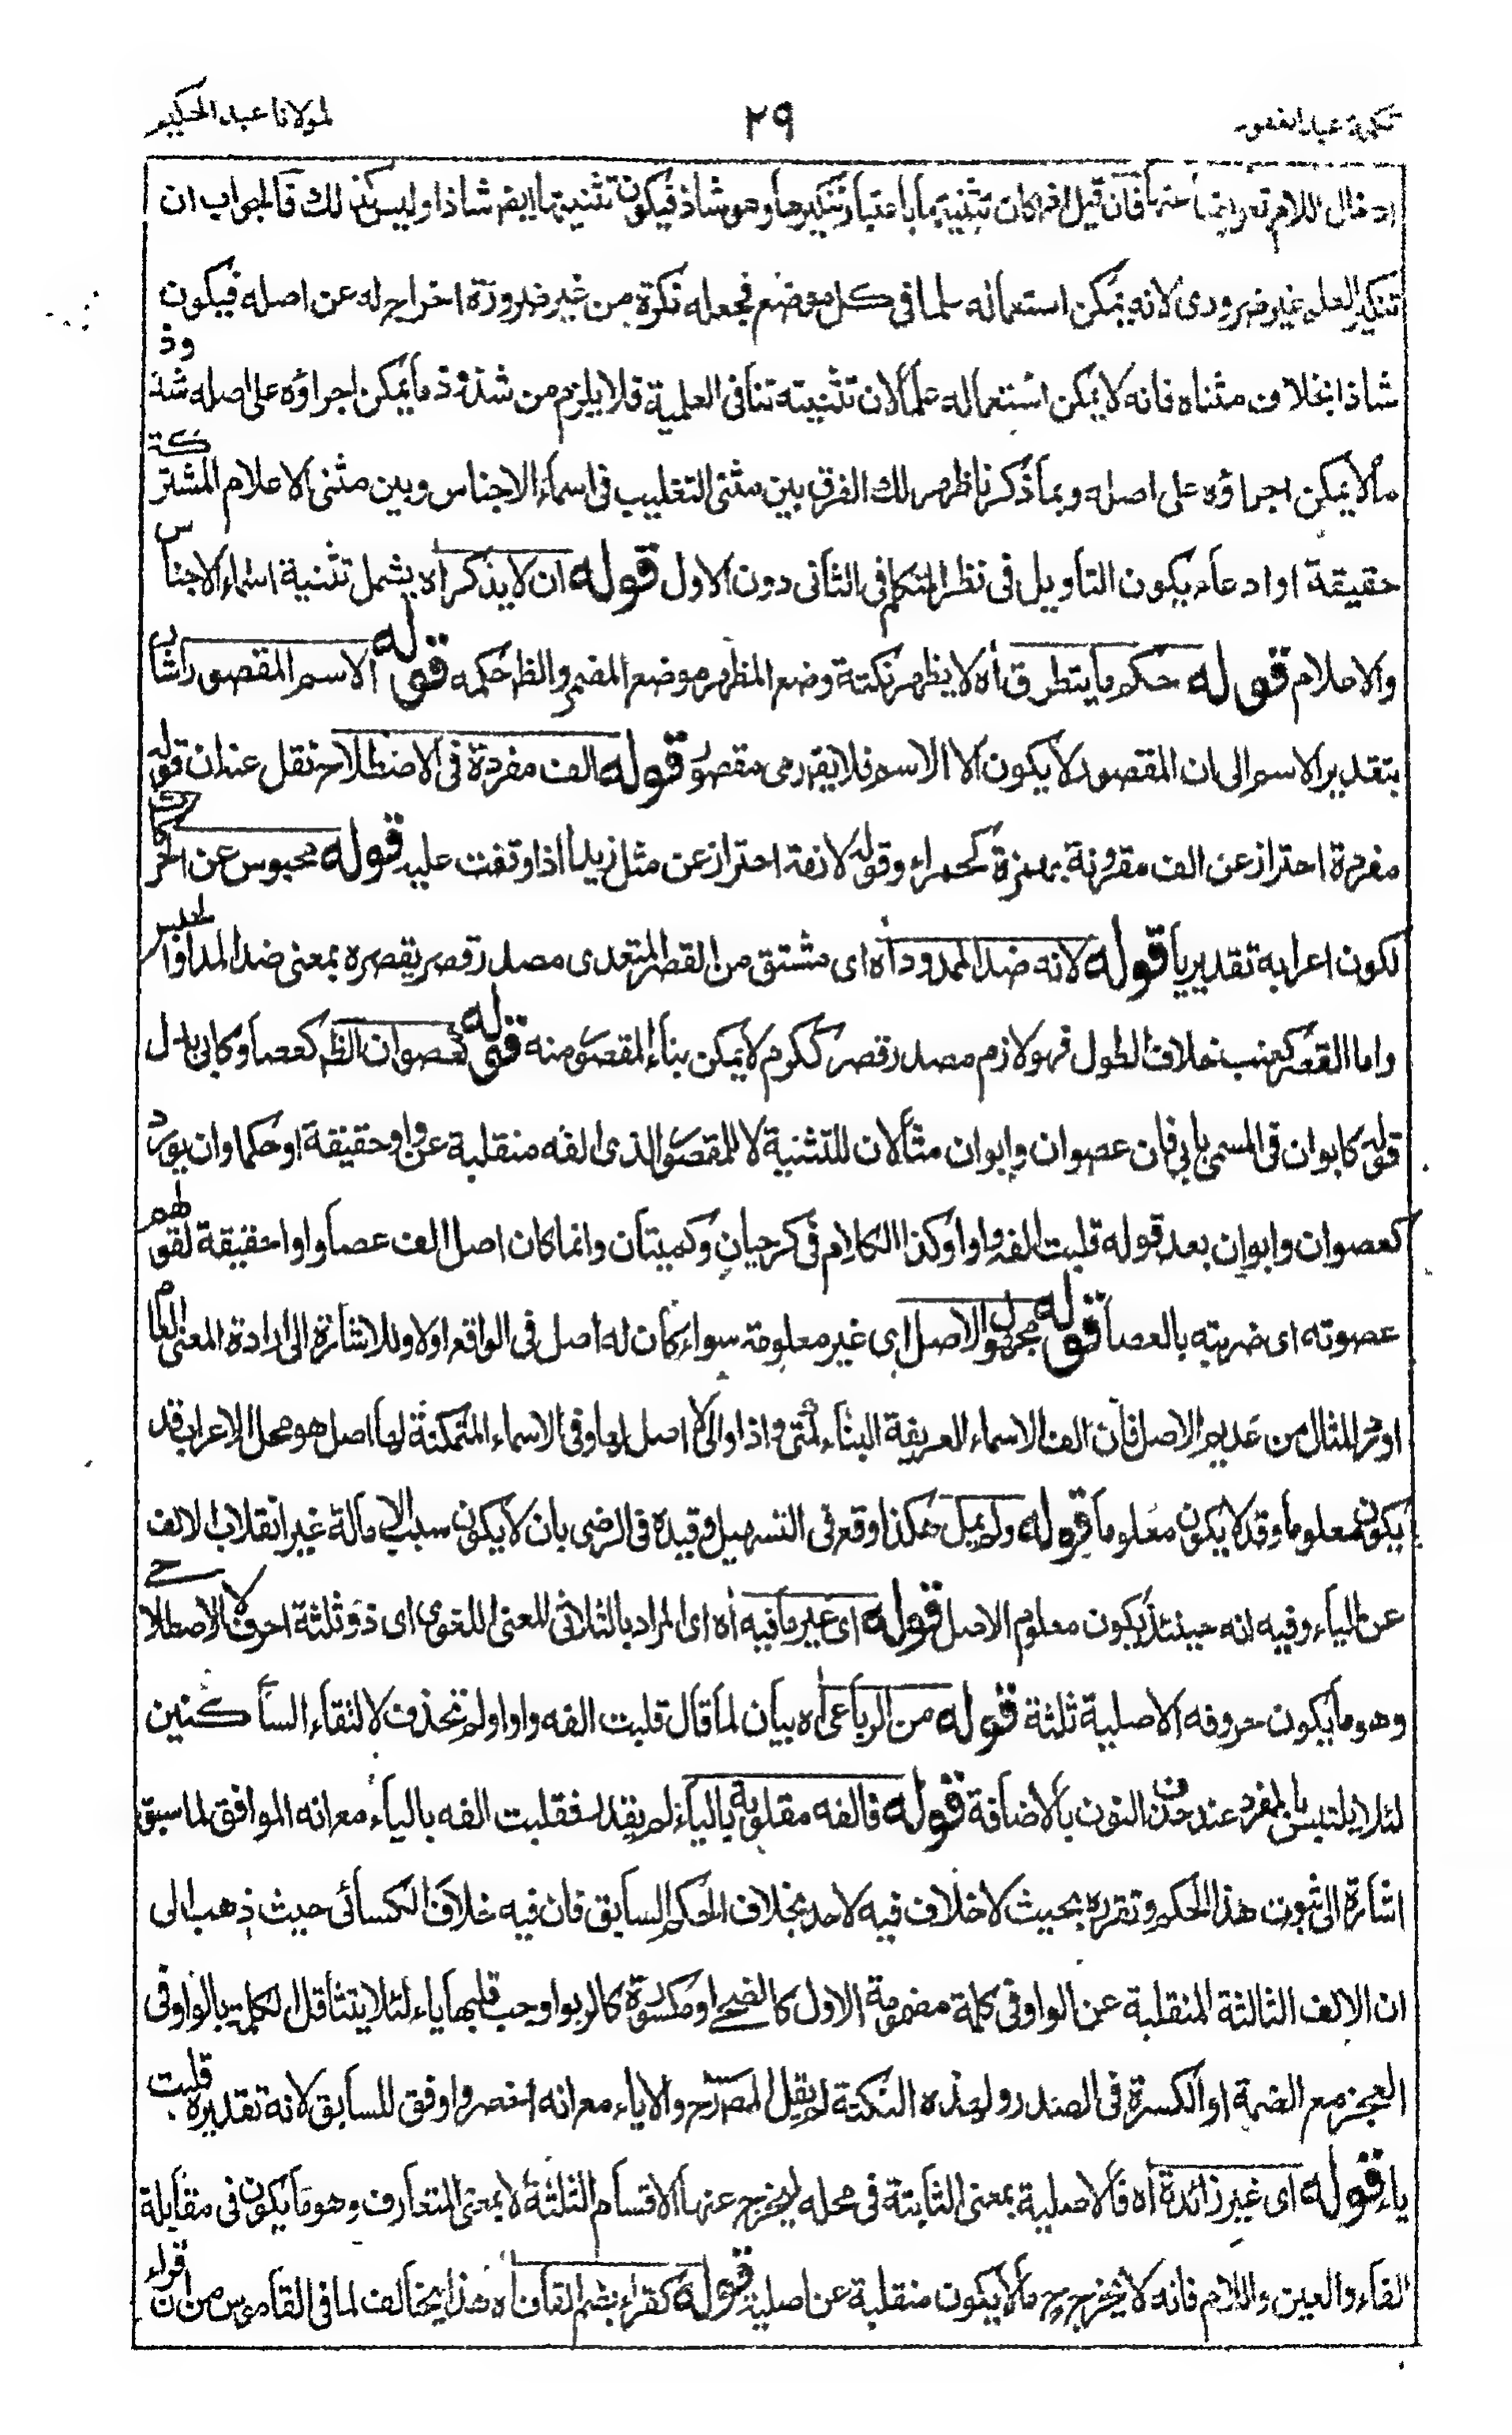 تكملة عبد الغفور
٢٩
لمولانا عبد الحكيم
ادخال اللام تعريضا عنها فان قيل اذا كان تثنيتها باعتبار تنكيرها وهو شاذ فيكون تثنيتها ايضم شاذا وليس كذلك فالجواب ان
تنكير العلم غير ضروري لانه يمكن استعماله علما في كل موضع فجعله نكرة من غير ضرورة اخراج له عن اصله فيكون
شاذا بخلاف مثناه فانه لا يمكن استعماله علما لان تثنيته تنافي العلمية فلا يلزم من شذوذ ما يمكن اجراؤه على اصله شذوذ
ما لا يمكن اجراؤه على اصله وبما ذكرنا ظهر لك الفرق بين مثنى التغليب في اسماء الاجناس وبين مثنى الاعلام المشتركة
حقيقة او ادعاء يكون التاويل في نظر المتكلم في الثاني دون الاول قوله ان لا يذكر اه يشمل تثنية اسماء الاجناس
والاعلام قوله حكم ما يتطرق اه لا يظهر نكتة وضع المظهر موضع المضمر والظ حكمه قوله الاسم المقصور اشار
بتقدير الاسم الى ان المقصور لا يكون الا الاسم فلا يقم رمى مقصور قوله الف مفردة في الاصطلاح نقل عنه ان قوله
مفردة احتراز عن الف مقرونة بهمزة كحمراء وقوله لازمة احتراز عن مثل زيدا اذا وقفت عليه قوله محبوس عن الحركات
لكون اعرابه تقديريا قوله لانه ضد الممدود اه اي مشتق من القصر المتعدي مصدر قصر يقصره بمعنى ضد المد او الحبس
واما القصر كعنب خلاف الطول فهو لازم مصدر قصر ككرم لا يمكن بناء المقصور منه قوله كعصوان الظ كعصا وكابى بدل
قوله كابوان في المسمى بابى فان عصوان وابوان مثالان للتثنية لا للمقصور الذي الفه منقلبة عن واو حقيقة او حكما وان يورد
كعصوان وابوان بعد قوله قلبت الفه واوا وكذا الكلام في كرحيان وكميتان وانما كان اصل الف عصا واوا حقيقة لقولهم
عصوته اي ضربته بالعصا قوله مجهول الاصل اي غير معلومة سواء كان له اصل في الواقع اولا وللاشارة الى ارادة المعنى العام
اورد المثال من عديم الاصل فان الف الاسماء العريقة البناء كمتى واذا والى لا اصل لها وفي الاسماء المتمكنة لها اصل هو محل الاعراب قد
يكون معلوما وقد لا يكون معلوما قوله ولم يمل هكذا وقع في التسهيل وقيده في الرضى بان لا يكون سبب الامالة غير انقلاب الالف
عن الياء وفيه انه حينئذ يكون معلوم الاصل قوله اي غير ما فيه اه اي المراد بالثلاثي المعنى اللغوي اي ذو ثلثة احرف لا الاصطلاحي
وهو ما يكون حروفه الاصلية ثلثة قوله من الرباعي اه بيان لما قال قلبت الفه واوا ولم تحذف لالتقاء الساكنين
لئلا يلتبس بالمفرد عند حذف النون بالاضافة قوله فالفه مقلوبة بالياء لم يقل فقلبت الفه بالياء مع انه الموافق لما سبق
اشارة الى ثبوت هذا الحكم وتقرره بحيث لا خلاف فيه لاحد بخلاف الحكم السابق فان فيه خلاف الكسائي حيث ذهب الى
ان الالف الثالثة المنقلبة عن الواو في كلمة مضمومة الاول كالضحى او مكسورة كالربوا وجب قلبها ياء لئلا يتثاقل الكلمة بالواو في
العجز مع الضمة او الكسرة في الصدر ولهذه النكتة لم يقل المصرح والا ياء مع انه اخصر واوفق للسابق لانه تقديره قلبت
ياء قوله اي غير زائدة اه فالاصلية بمعنى الثابتة في محله ليخرج عنها الاقسام الثلثة لا بمعنى المتعارف وهو ما يكون في مقابلة
الفاء والعين واللام فانه لا يخرج ح ما لا يكون منقلبة عن اصلية قوله كقراء بضم القاف اه هذا يخالف لما في القاموس من ان قراء